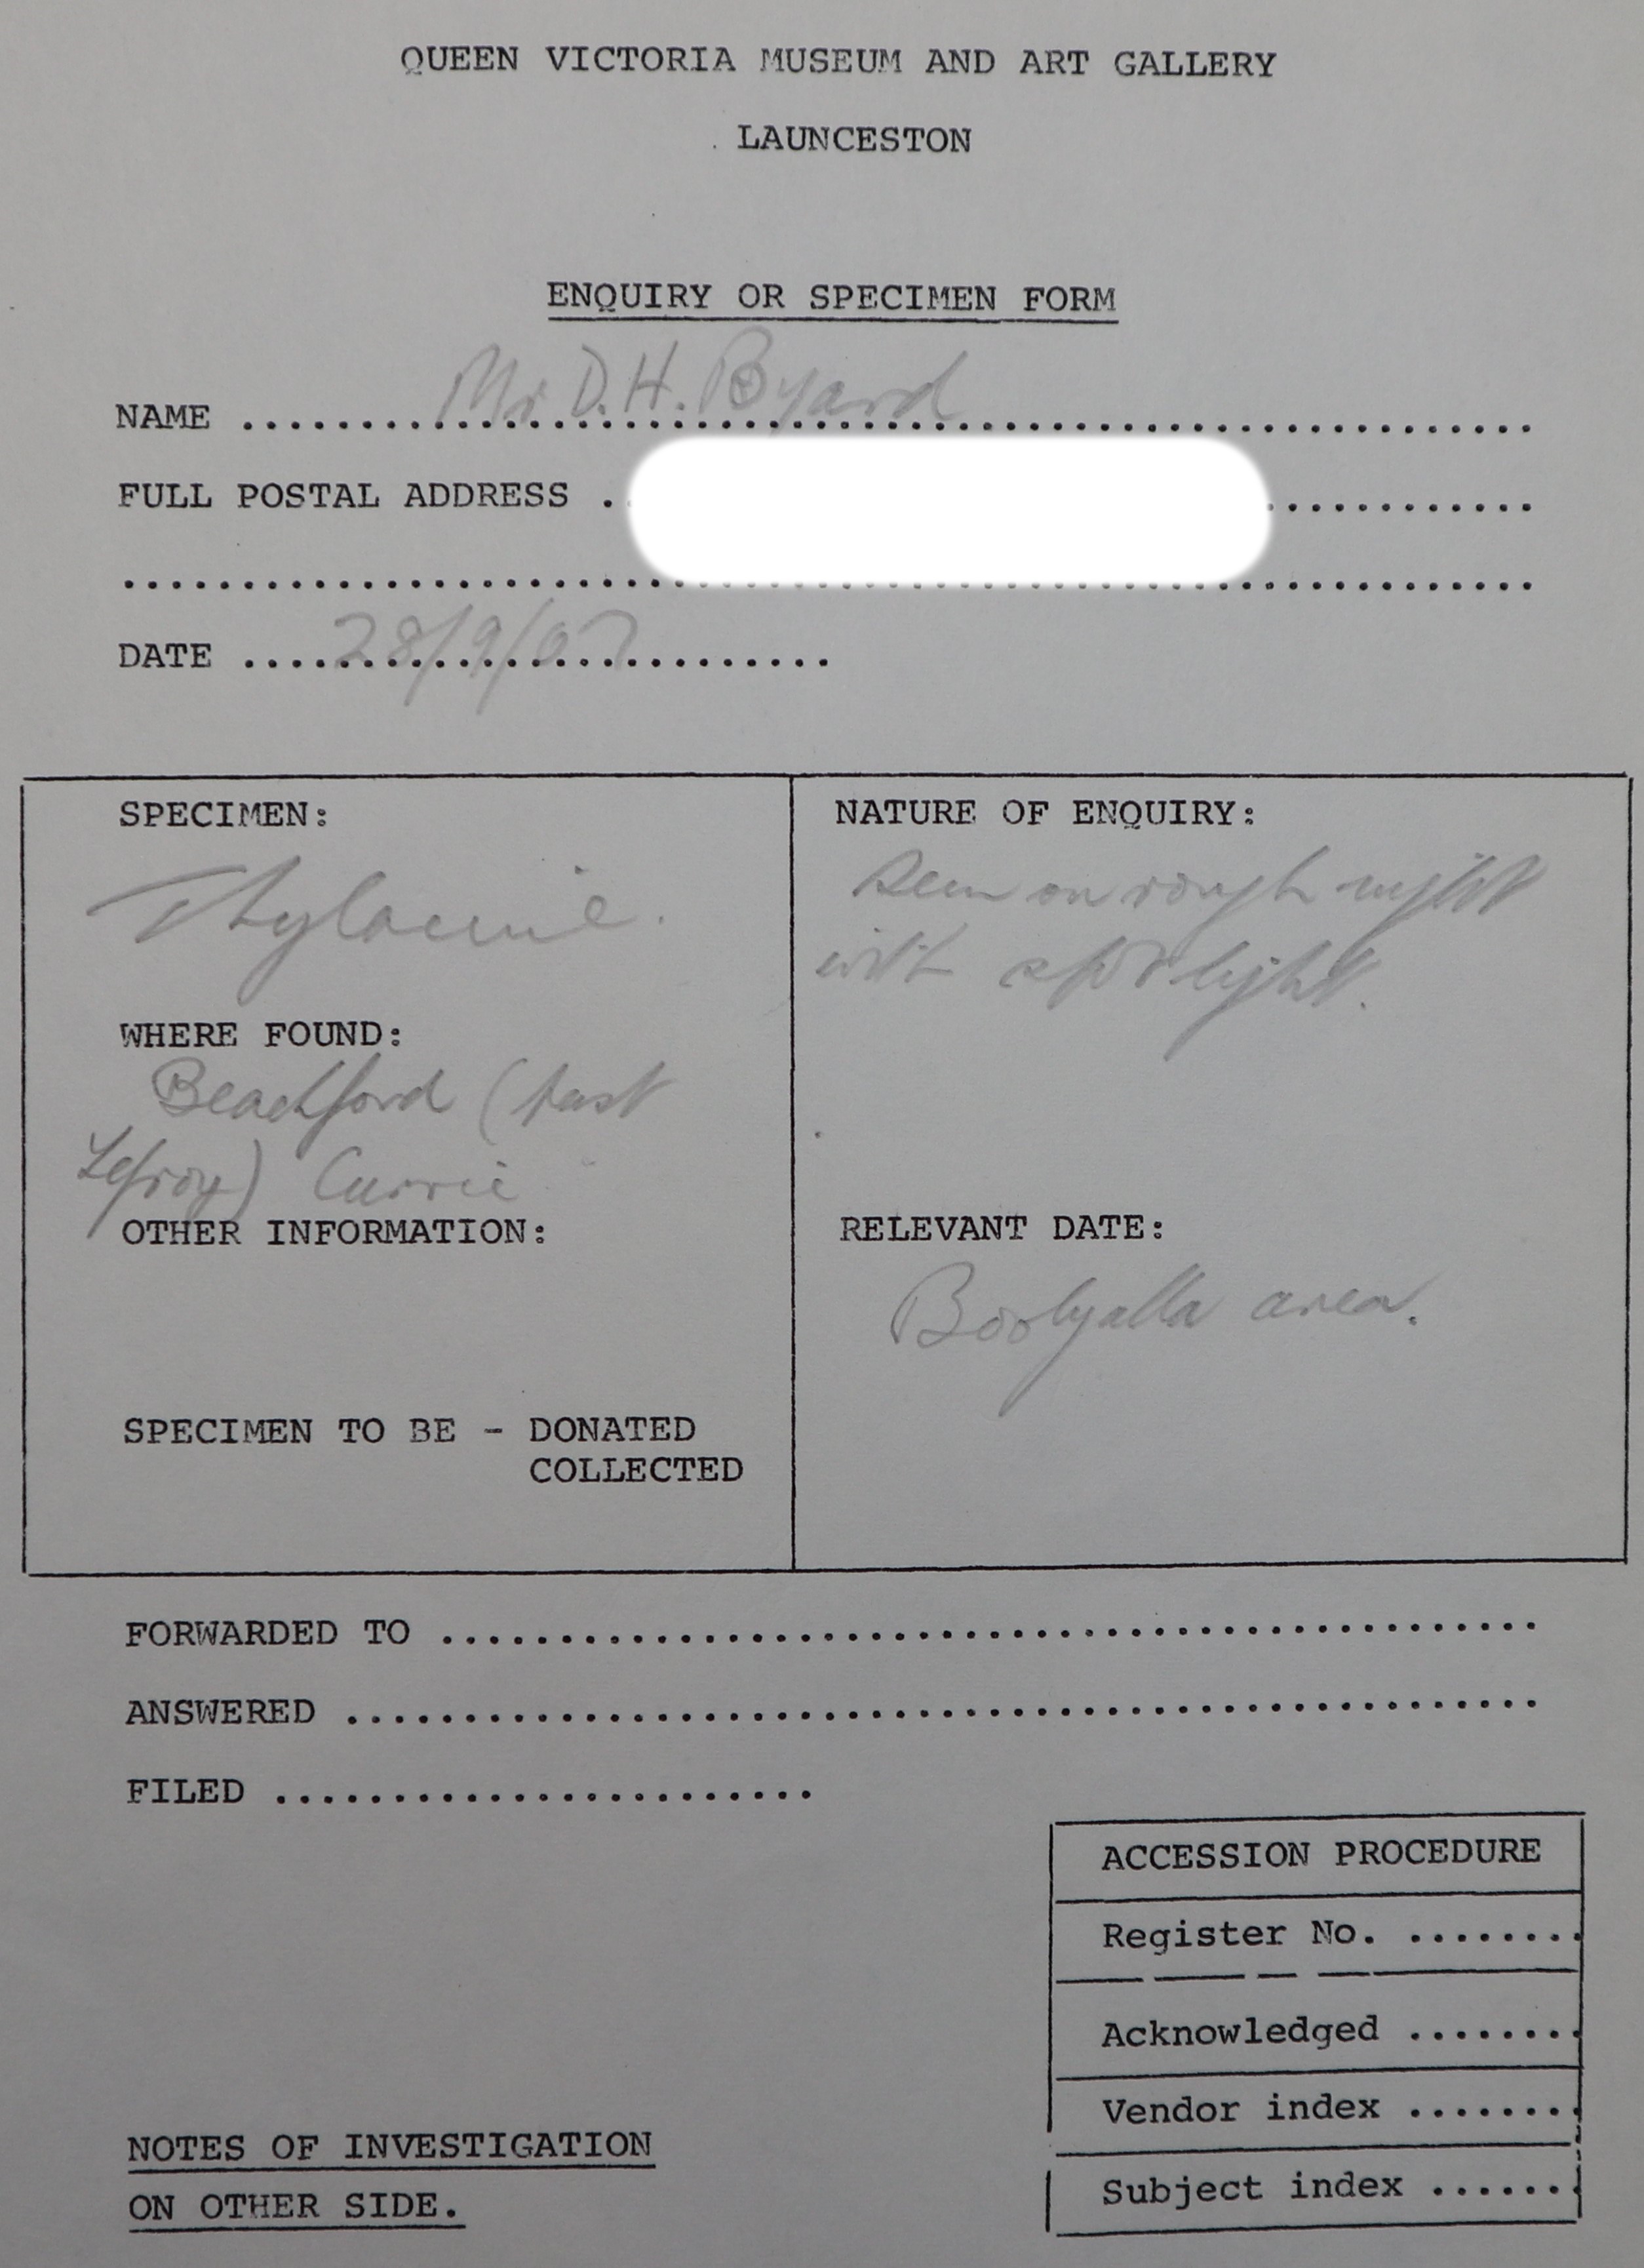 QUEEN VICTORIA MUSEUM AND ART GALLERY
LAUNCESTON
ENQUIRY OR SPECIMEN FORM
NAME Mr D.H. Byard
FULL POSTAL ADDRESS
DATE 28/9/67
SPECIMEN:
Thylacine.
WHERE FOUND:
Beachford (past
Lefroy) Currie
OTHER INFORMATION:
SPECIMEN TO BE - DONATED
COLLECTED
NATURE OF ENQUIRY:
Seen on rough night
with spotlight.
RELEVANT DATE:
Boobyalla area.
FORWARDED TO
ANSWERED
FILED
ACCESSION PROCEDURE
Register No.
Acknowledged
Vendor index
Subject index
NOTES OF INVESTIGATION
ON OTHER SIDE.